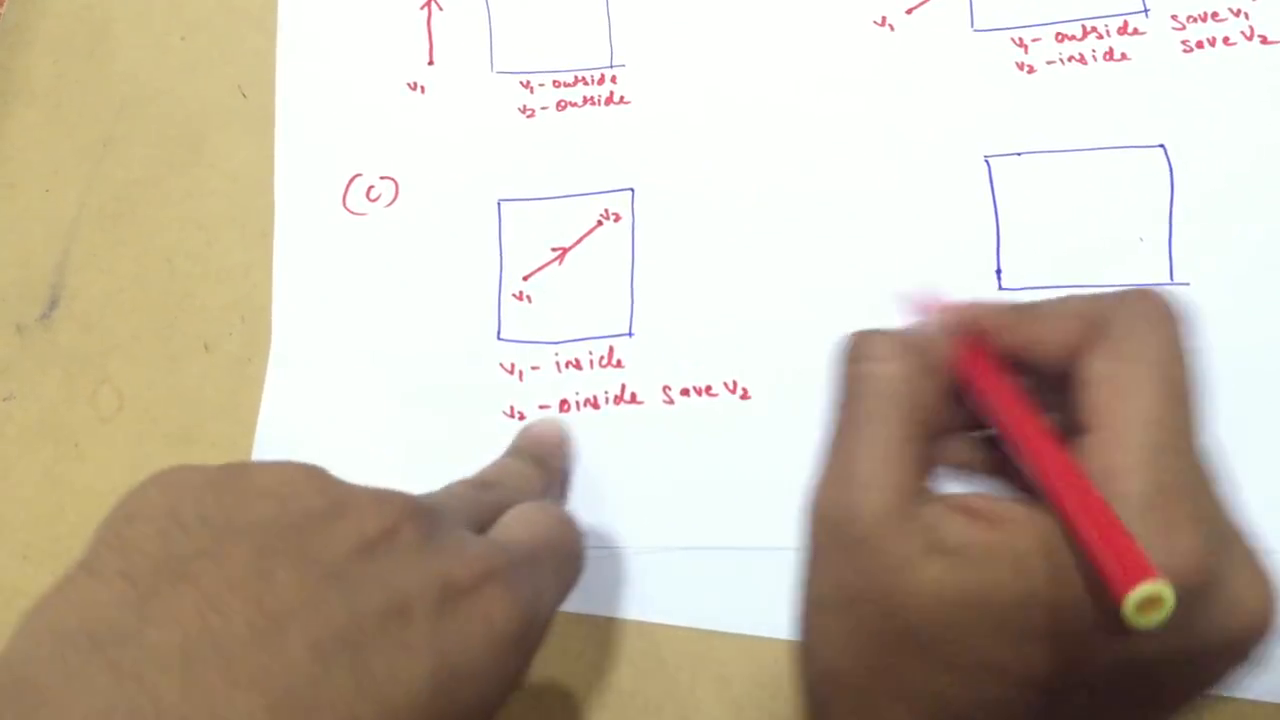 v1
v1 - outside
v2 - outside
v1
v1 - outside save v1'
v2 - inside save v2
(C)
v2
v1
v1 - inside
v2 - inside save v2